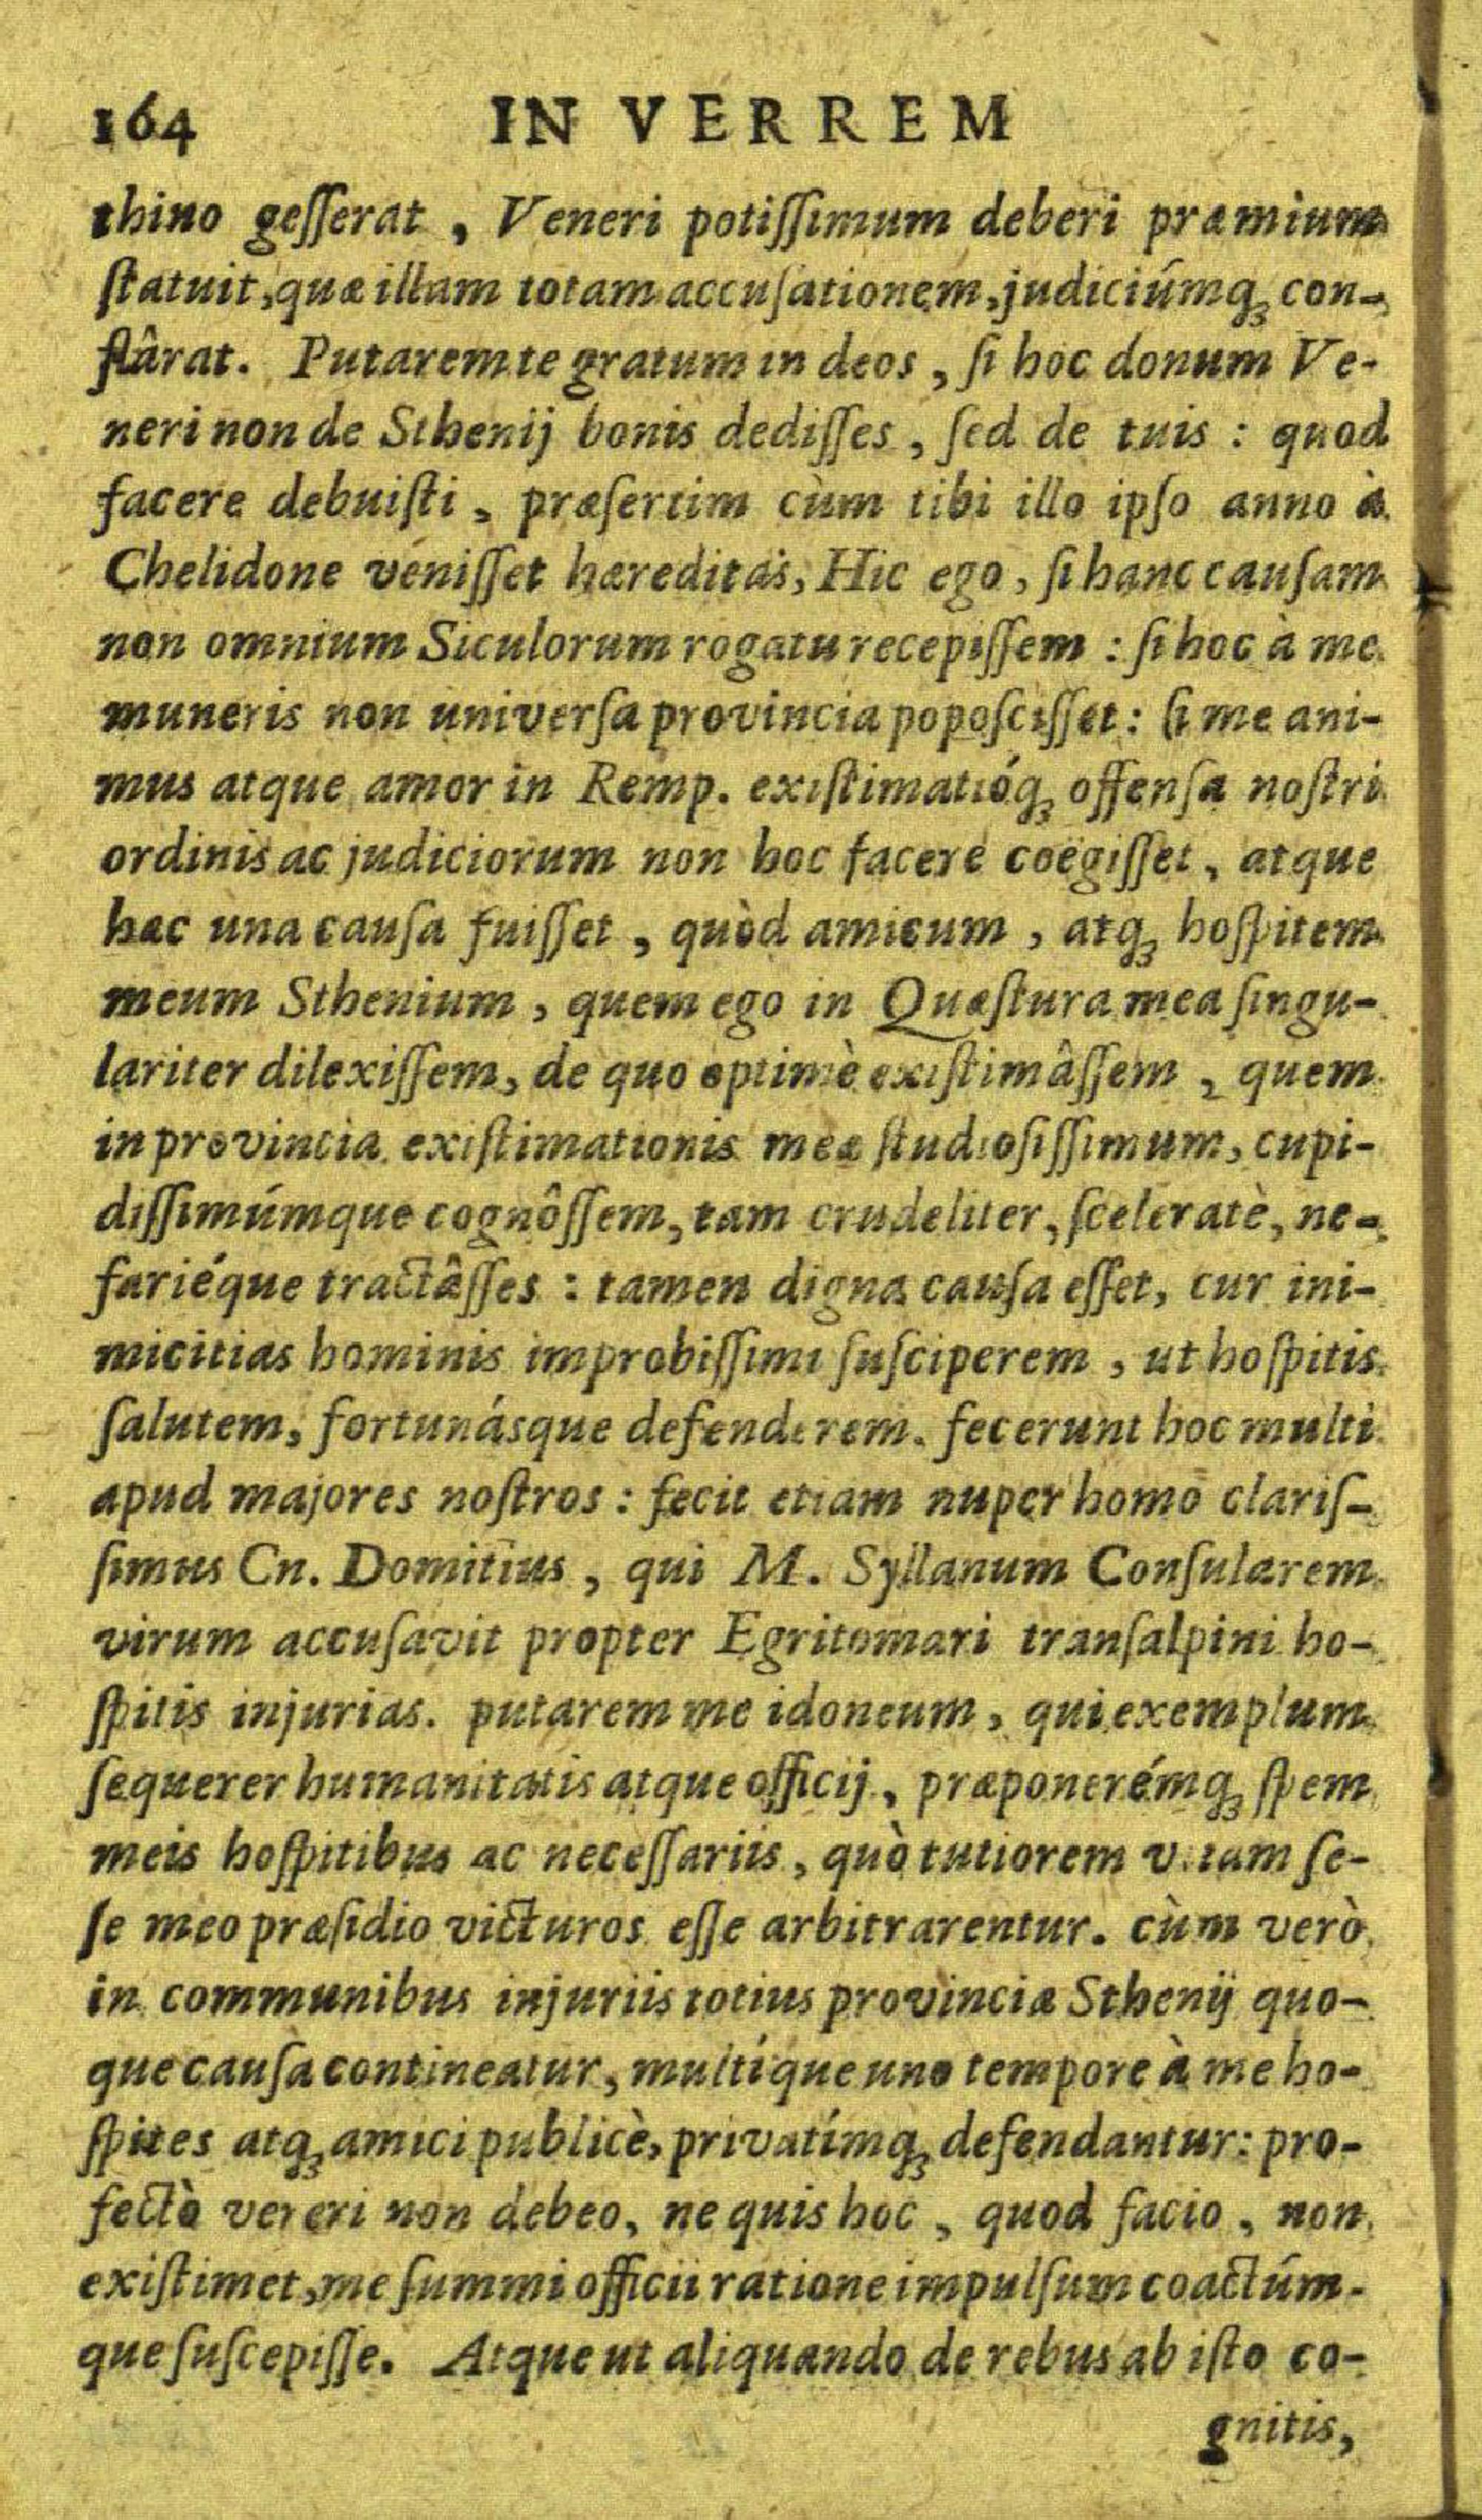 164 IN VERREM
thino geſſerat, Veneri potiſſimum deberi præmium
ſtatuit, quæ illam totam accuſationem, judiciúmq; con-
flârat. Putarem te gratum in deos, ſi hoc donum Ve-
neri non de Sthenij bonis dediſſes, ſed de tuis: quod
facere debuiſti, præſertim cùm tibi illo ipſo anno à
Chelidone veniſſet hæreditas, Hic ego, ſi hanc cauſam
non omnium Siculorum rogatu recepiſſem: ſi hoc à me
muneris non univerſa provincia popoſciſſet: ſi me ani-
mus atque amor in Remp. exiſtimatióq; offenſa noſtri
ordinis ac judiciorum non hoc facere coëgiſſet, atque
hæc una cauſa fuiſſet, quòd amicum, atq; hoſpitem
meum Sthenium, quem ego in Quæſtura mea ſingu-
lariter dilexiſſem, de quo optimè exiſtimâſſem, quem
in provincia exiſtimationis meæ ſtudioſiſſimum, cupi-
diſſimúmque cognôſſem, tam crudeliter, ſceleratè, ne-
fariéque tractâſſes: tamen digna cauſa eſſet, cur ini-
micitias hominis improbiſſimi ſuſciperem, ut hoſpitis
ſalutem, fortunásque defenderem. fecerunt hoc multi
apud majores noſtros: fecit etiam nuper homo clariſ-
ſimus Cn. Domitius, qui M. Syllanum Conſularem
virum accuſavit propter Egritomari tranſalpini ho-
ſpitis injurias. putarem me idoneum, qui exemplum
ſequerer humanitatis atque officij, præponerémq; ſpem
meis hoſpitibus ac neceſſariis, quò tutiorem vitam ſe-
ſe meo præſidio victuros eſſe arbitrarentur. cùm verò
in communibus injuriis totius provinciæ Sthenij quo-
que cauſa contineatur, multíque uno tempore à me ho-
ſpites atq; amici publicè, privatímq; defendantur: pro-
fectò vereri non debeo, ne quis hoc, quod facio, non
exiſtimet, me ſummi officii ratione impulſum coactúm-
que ſuſcepiſſe. Atque ut aliquando de rebus ab iſto co-
gnitis,